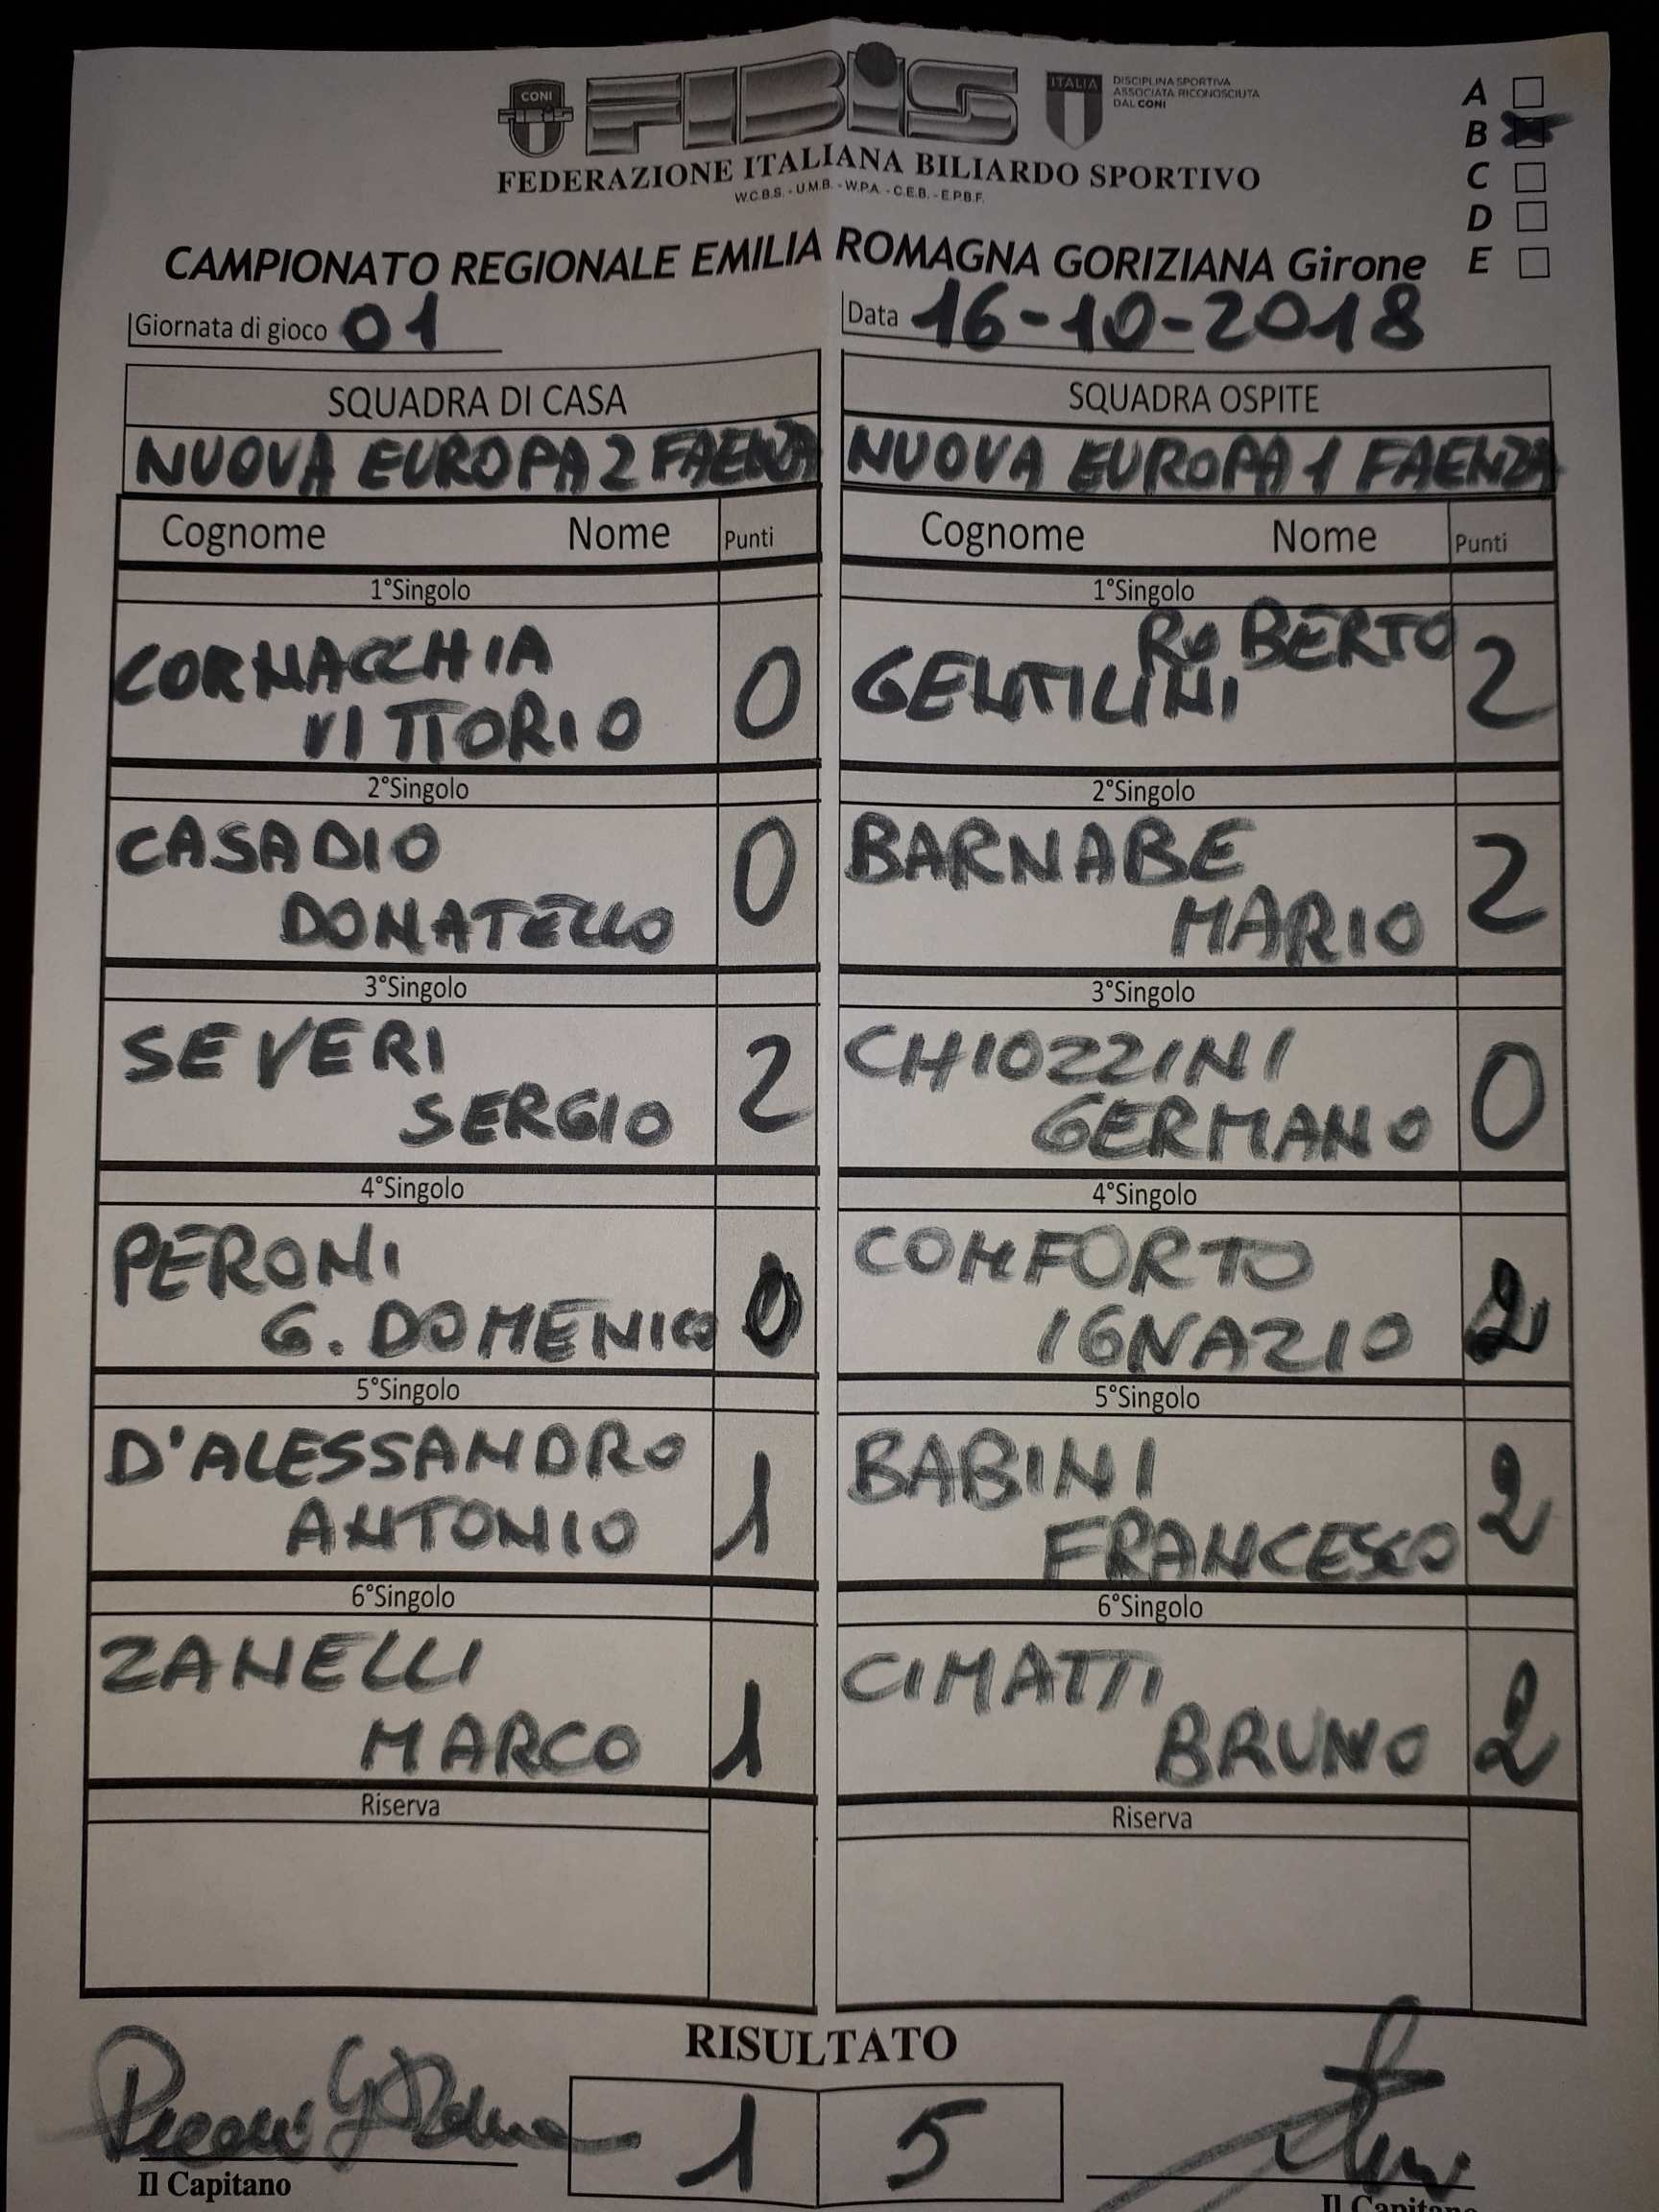 CONI
FIBiS
ITALIA
DISCIPLINA SPORTIVA
ASSOCIATA RICONOSCIUTA
DAL CONI
FEDERAZIONE ITALIANA BILIARDO SPORTIVO
W.C.B.S. - U.M.B. - W.P.A. - C.E.B. - E.P.B.F.
A
B
C
D
E
CAMPIONATO REGIONALE EMILIA ROMAGNA GORIZIANA Girone
Giornata di gioco 01
Data 16-10-2018
SQUADRA DI CASA
SQUADRA OSPITE
NUOVA EUROPA 2 FAENZA
NUOVA EUROPA 1 FAENZA
Cognome Nome Punti
Cognome Nome Punti
1°Singolo
1°Singolo
CORNACCHIA
VITTORIO 0
ROBERTO
GENTILINI 2
2°Singolo
2°Singolo
CASADIO
DONATELLO 0
BARNABE
MARIO 2
3°Singolo
3°Singolo
SEVERI
SERGIO 2
CHIOZZINI
GERMANO 0
4°Singolo
4°Singolo
PERONI
G. DOMENICO 0
COMFORTO
IGNAZIO 2
5°Singolo
5°Singolo
D'ALESSANDRO
ANTONIO 1
BABINI
FRANCESCO 2
6°Singolo
6°Singolo
ZANELLI
MARCO 1
CIMATTI
BRUNO 2
Riserva
Riserva
RISULTATO
1 5
Il Capitano
Il Capitano